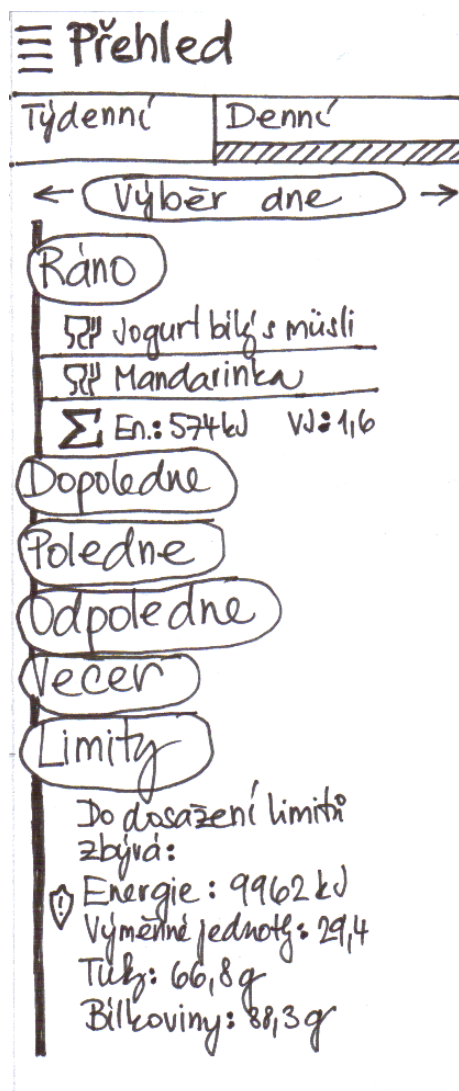 Přehled
Týdenní
Denní
← Výběr dne →
Ráno
Jogurt bílý s müsli
Mandarinka
Σ En.: 574kJ VJ: 1,6
Dopoledne
Poledne
Odpoledne
Večer
Limity
Do dosažení limitů
zbývá:
Energie: 9962 kJ
Výměnné jednotky: 29,4
Tuky: 66,8g
Bílkoviny: 88,3g